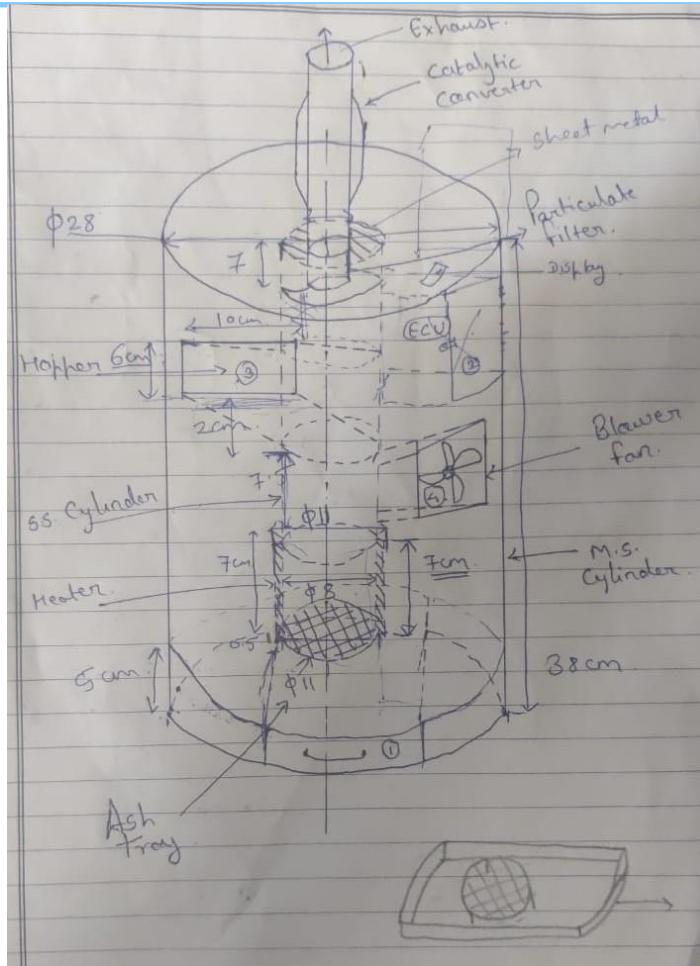 Exhaust.
Catalytic
Converter
Sheet metal
φ28
Particulate
filter.
7
Display.
10cm
ECU
Hopper 6cm
③
②
2cm
Blower
fan.
7.
④
SS. Cylinder
φ11
7cm
7cm
M.S.
Cylinder.
Heater.
φ8
0.5
φ11
5cm
38cm
①
Ash
Tray